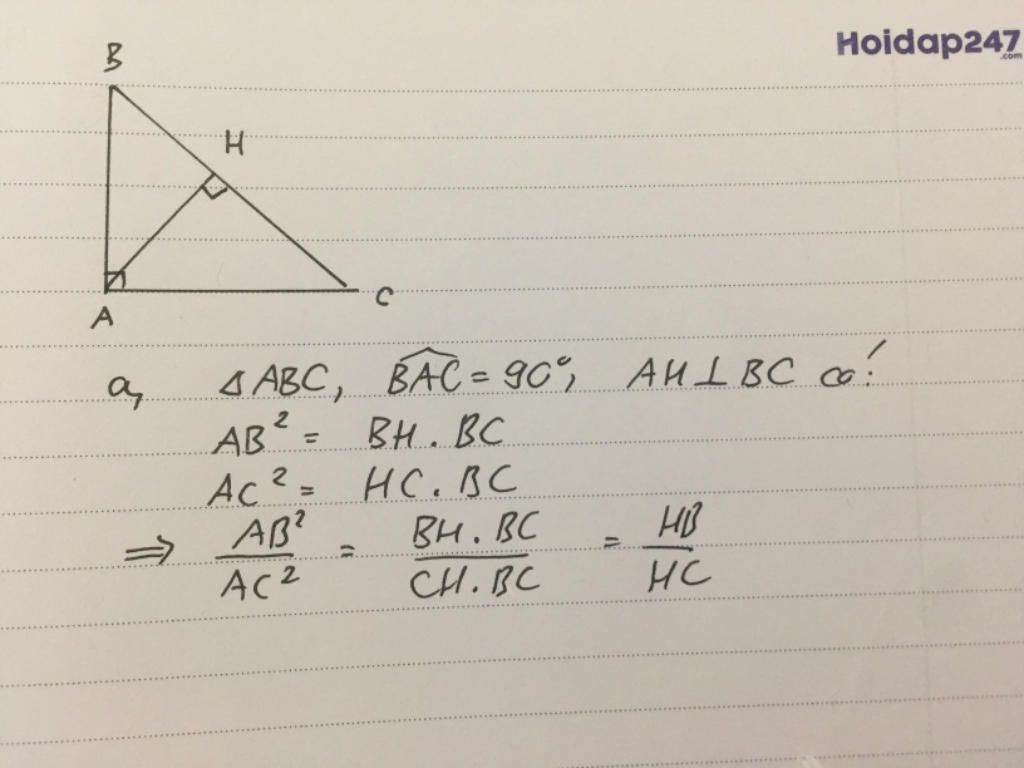 Hoidap247
.com
B
H
A
C
a, △ABC, \widehat{BAC} = 90°, AH ⊥ BC có:
AB² = BH . BC
AC² = HC . BC
⇒ AB²/AC² = BH . BC/CH . BC = HB/HC